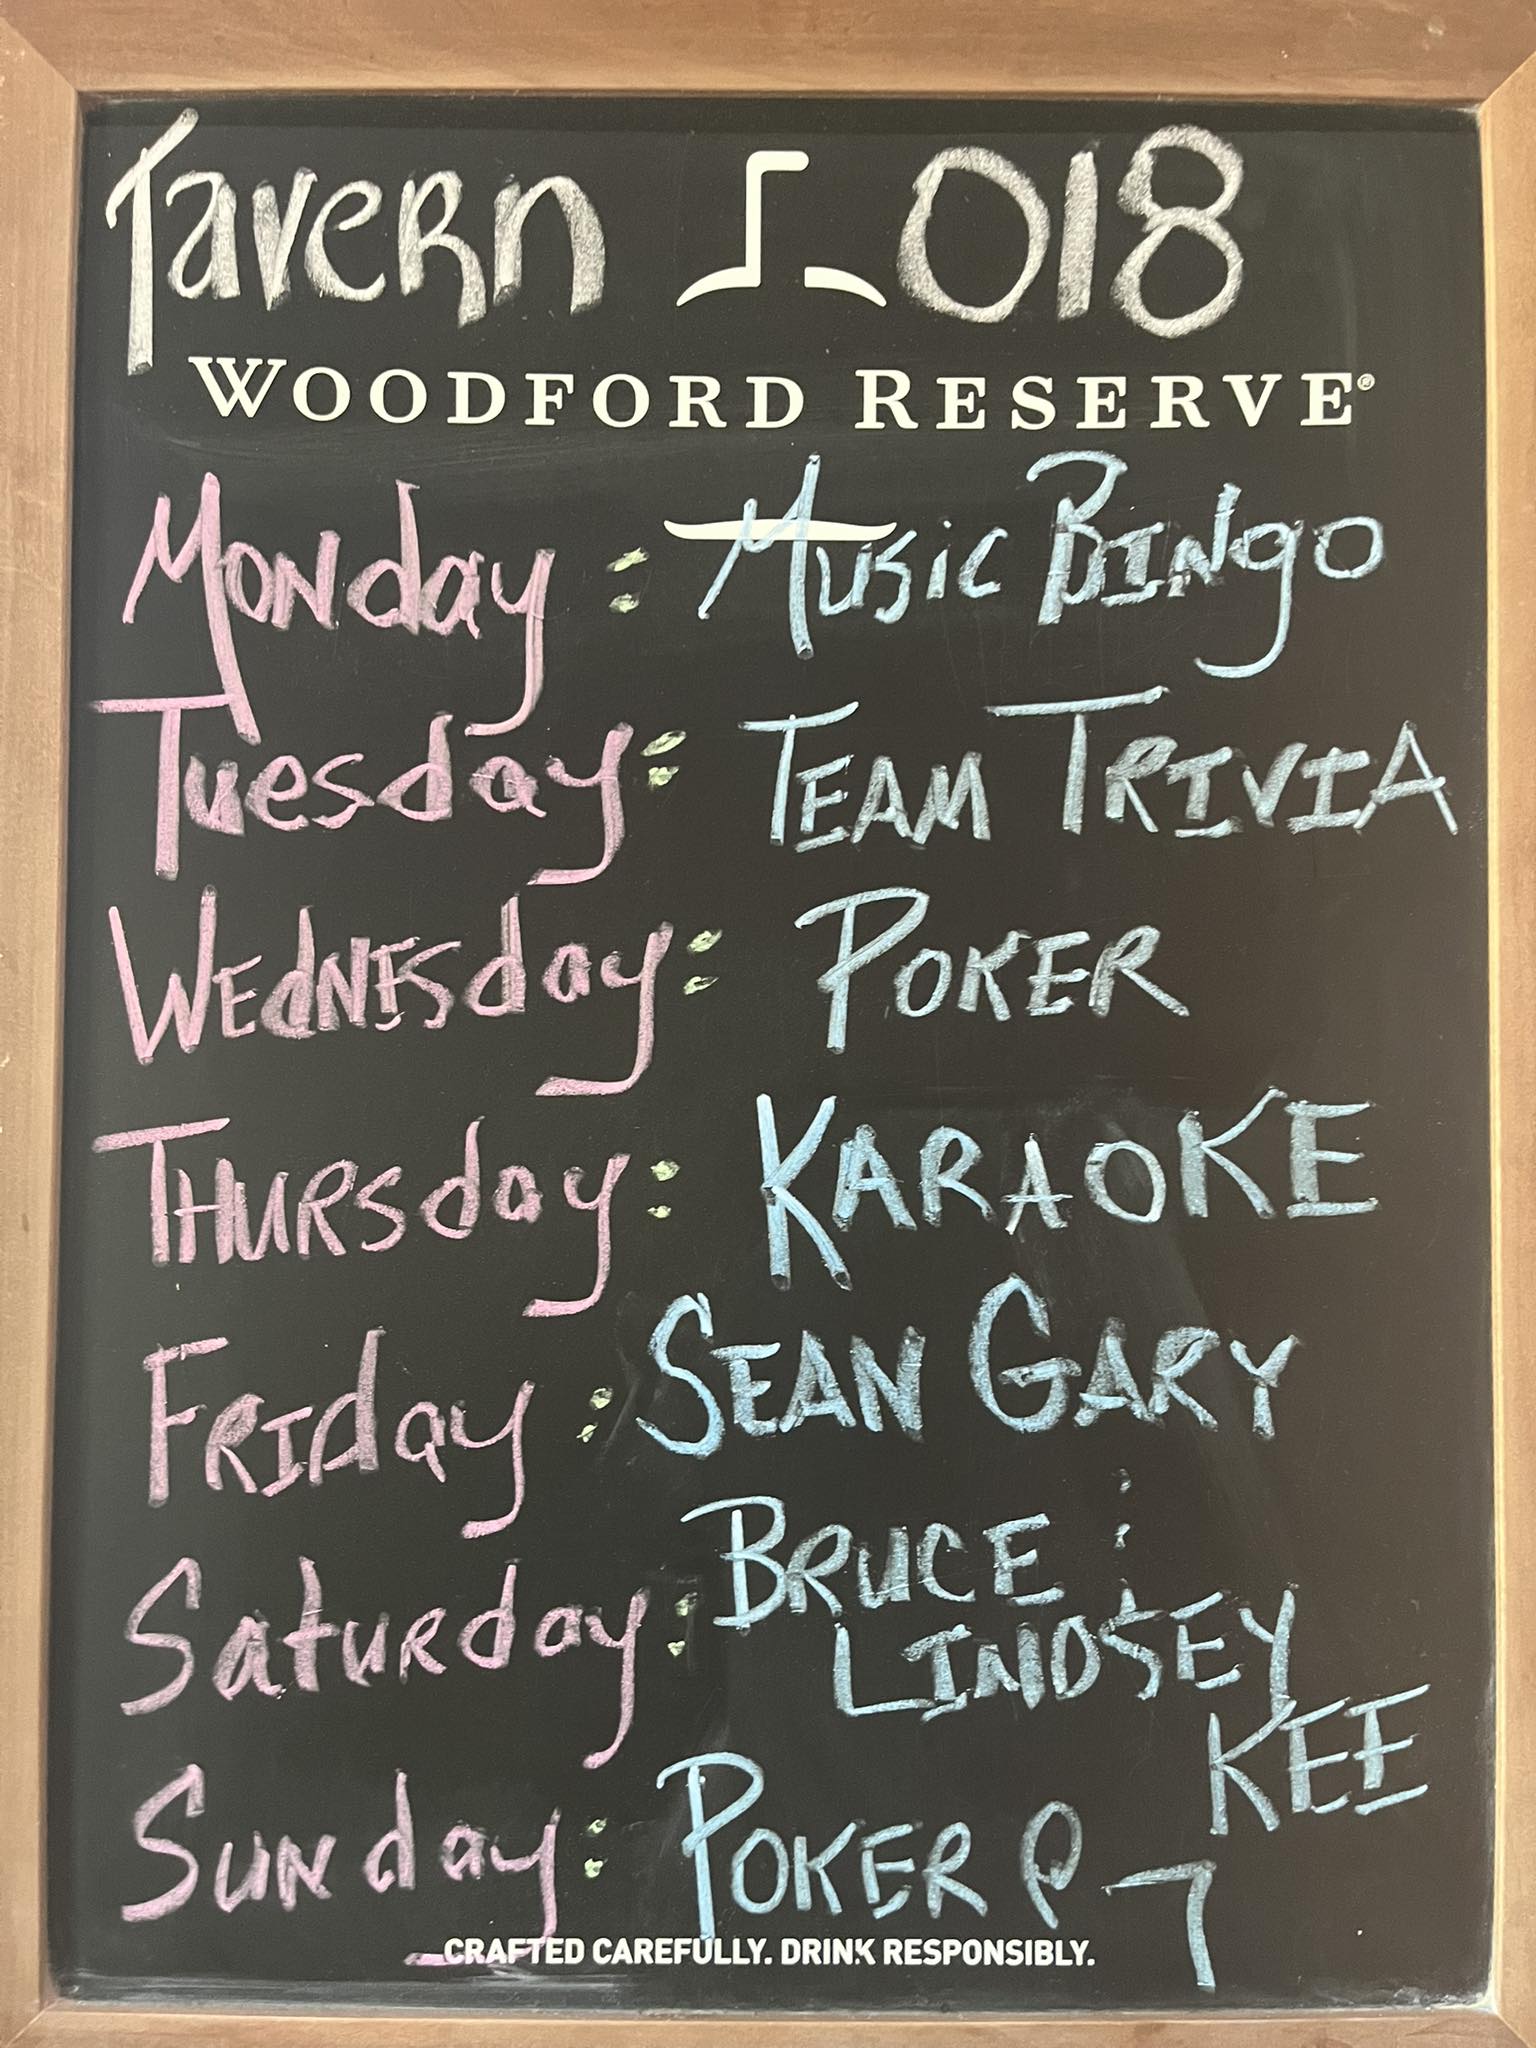 Tavern 018
WOODFORD RESERVE®
Monday: Music Bingo
Tuesday: TEAM TRIVIA
Wednesday: POKER
Thursday: KARAOKE
Friday: SEAN GARY
Saturday: BRUCE :
LINDSEY
KEE
Sunday: POKER @ 7
CRAFTED CAREFULLY. DRINK RESPONSIBLY.